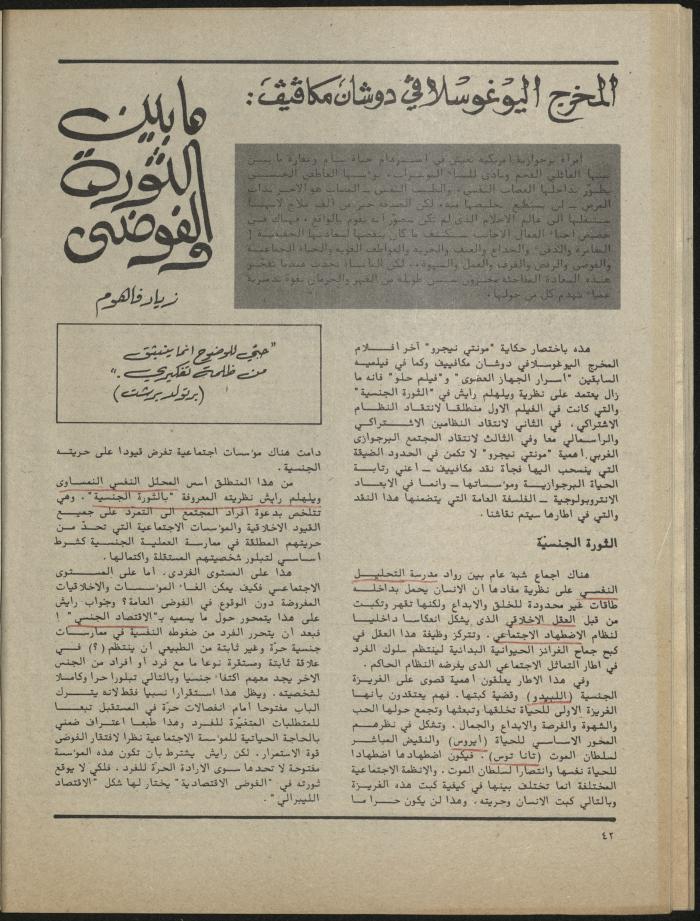 المخرج اليوغوسلافي دوشان مكاڤيڤ :
ما بين
الثورة
والفوضى
زياد فاهوم
امرأة برجوازية امريكية تعيش في
بيتها العائلي الفخم
الى عالم الاحلام الذي لم تكن تتصور انه يقوم بالواقع ، فهناك في
والفوضى والرفض والقرف والعمل والشهوة
هذه السعادة المفاجئة مخزون سنين طويلة من القهر والحرمان بقوة تدميرية
عمياء تهدم كل من حولها .
"حبّي للوضوح انما ينبثق
من ظلمتي تفكيري ."
(برتولد بريشت)
هذه باختصار حكاية "مونتي نيجرو" آخر افـــلام
المخرج اليوغوسلافي دوشان مكافييف وكما في فيلميه
السابقين "اسرار الجهاز العضوي" و"فيلم حلو" فانه ما
زال يعتمد على نظرية ويلهلم رايش في "الثورة الجنسية"
والتي كانت في الفيلم الاول منطلقا لانتقاد النظــام
الاشتراكي ، في الثاني لانتقاد النظامين الاشـــتراكي
والراسمالي معا وفي الثالث لانتقاد المجتمع البرجوازي
الغربي. اهمية "مونتي نيجرو" لا تكمن في الحدود الضيقة
التي ينسحب اليها فجأة نقد مكافييف ــ اعني رتابــة
الحياة البرجوازيــة ومؤسساتها ــ وانما في الابعــاد
الانتروبولوجية ــ الفلسفة العامة التي يتضمنها هذا النقد
والتي في اطارها سيتم نقاشنا .
الثورة الجنسيّة
هناك اجماع شبه عام بين رواد مدرسة التحليـــل
النفسي على نظرية مفادها أن الانسان يحمل بداخلــه
طاقات غير محدودة للخلق والابداع ولكنها تقهر وتكبت
من قبل العقل الاخلاقي الذي يشكل انعكاسا داخليــا
لنظام الاضطهاد الاجتماعي . وتتركز وظيفة هذا العقل في
كبح جماح الغرائز الحيوانية البدائية لينتظم سلوك الفرد
في اطار التماثل الاجتماعي الذي يفرضه النظام الحاكم .
وفي هذا الاطار يعلقون اهمية قصوى على الغريزة
الجنسية (الليبيدو) وقضية كبتها . فهم يعتقدون بأنهــا
الغريزة الاولى للحياة تخلقها وتبعثها وتجمع حولها الحب
والشهوة والفرصة والابداع والجمال . وتشكل في نظرهــم
المحور الاساسي للحياة (ايروس) والنقيض المباشــر
لسلطان الموت (تانا توس) . فيكون اضطهادها اضطهادا
للحياة نفسها وانتصارا لسلطان الموت . والانظمة الاجتماعية
المختلفة انما تختلف بينها في كيفية كبت هذه الغريــزة
وبالتالي كبت الانسان وحريته . وهذا لن يكون حــرا ما
دامت هناك مؤسسات اجتماعية تفرض قيودا على حريتــه
الجنسية .
من هذا المنطلق اسس المحلل النفسي النمســاوي
ويلهلم رايش نظريته المعروفة "بالثورة الجنسية" . وهي
تتلخص بدعوة أفراد المجتمع الى التمرد على جميــع
القيود الاخلاقية والمؤسسات الاجتماعية التي تحــد مــن
حريتهم المطلقة في ممارسة العملية الجنسية كشــرط
اساسي لتبلور شخصيتهم المستقلة واكتمالها .
هذا على المستوى الفردي . اما على المســـتوى
الاجتماعي فكيف يمكن الغاء المؤسســات والاخلاقيات
المفروضة دون الوقوع في الفوضى العامة؟ وجواب رايش
على هذا يتمحور حول ما يسميه بـ"الاقتصاد الجنسي" !
فبعد أن يتحرر الفرد من ضغوطه النفسية في ممارســات
جنسية حرّة وغير ثابتة من الطبيعي ان ينتظم (؟) فــي
علاقة ثابتة ومستقرة نوعا ما مع فرد أو افراد من الجنس
الاخر يجد معهم اكتفاء جنسيا وبالتالي تبلورا حرا وكاملا
لشخصيته . ويظل هذا استقرارا نسبيا فقط لانه يتــرك
الباب مفتوحا أمام انفصالات حرّة في المستقبل تبعــا
للمتطلبات المتغيّرة للفرد وهذا طبعا اعتراف ضمني
بالحاجة الحياتية للمؤسسة الاجتماعية نظرا لافتقار الفوضى
قوة الاستمرار . لكن رايش يشترط بأن تكون هذه المؤسسة
مفتوحة لا تحدها سوى الارادة الحرّة للفرد . فلكي لا يوقع
ثورته في "الفوضى الاقتصادية" يختار لها شكل "الاقتصاد
الليبرالي" .
٤٢